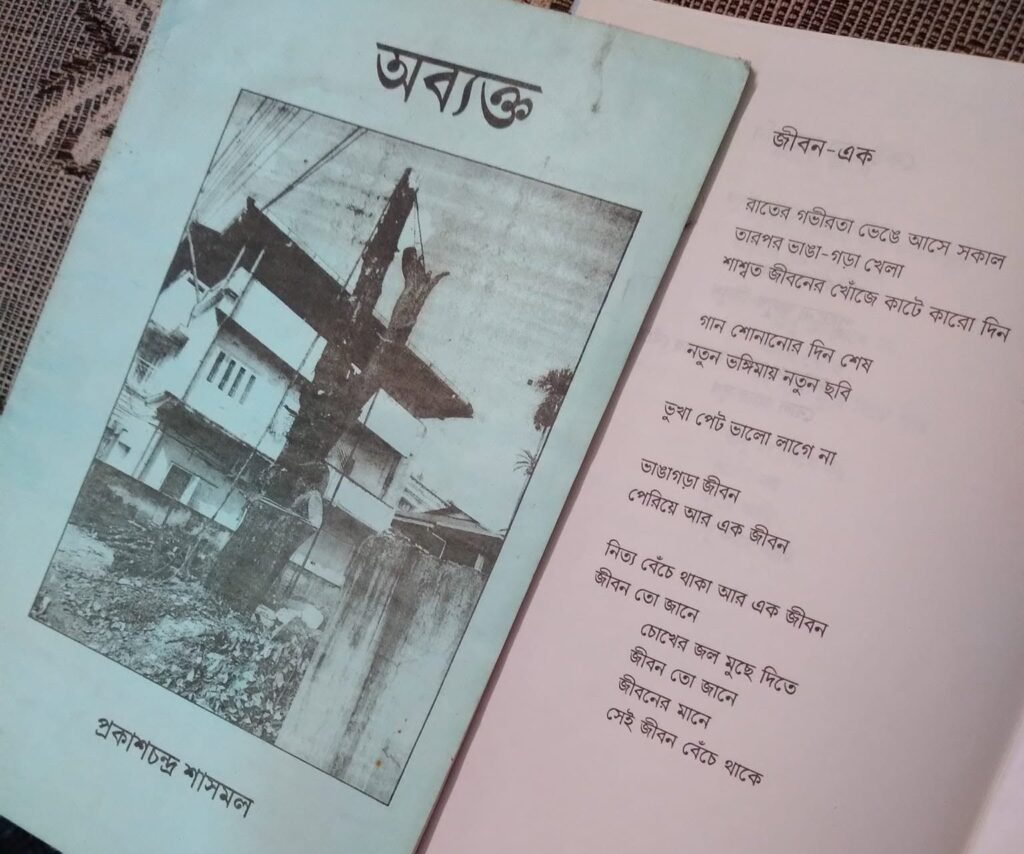 অব্যক্ত
প্রকাশচন্দ্র শাসমল
জীবন-এক
রাতের গভীরতা ভেঙে আসে সকাল
তারপর ভাঙা-গড়া খেলা
শাশ্বত জীবনের খোঁজে কাটে কারো দিন
গান শোনানোর দিন শেষ
নতুন ভঙ্গিমায় নতুন ছবি
ভুখা পেট ভালো লাগে না
ভাঙাগড়া জীবন
পেরিয়ে আর এক জীবন
নিত্য বেঁচে থাকা আর এক জীবন
জীবন তো জানে
চোখের জল মুছে দিতে
জীবন তো জানে
জীবনের মানে
সেই জীবন বেঁচে থাকে